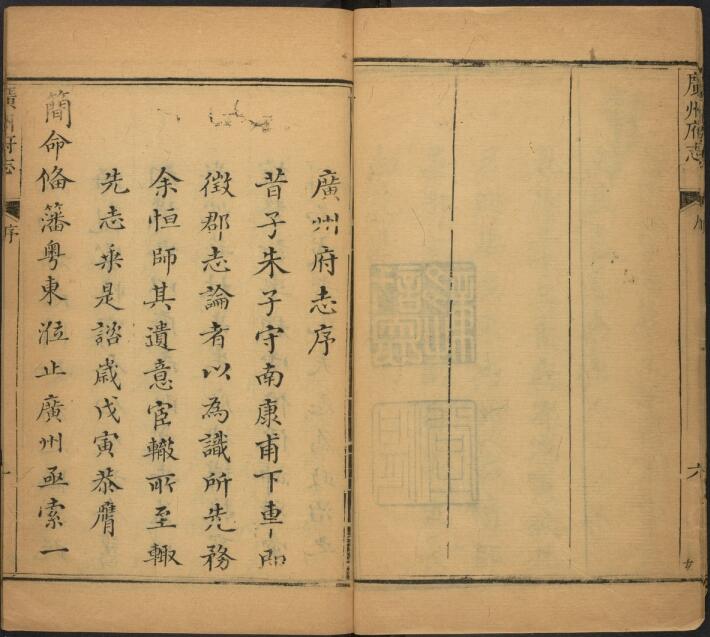 廣州府志
六
廣州府志序
昔子朱子守南康甫下車即
徵郡志論者以為識所先務
余恒師其遺意宦轍所至輙
先志乘是諮歲戊寅恭膺
簡命俻藩粤東涖止廣州亟索一
廣州府志
序